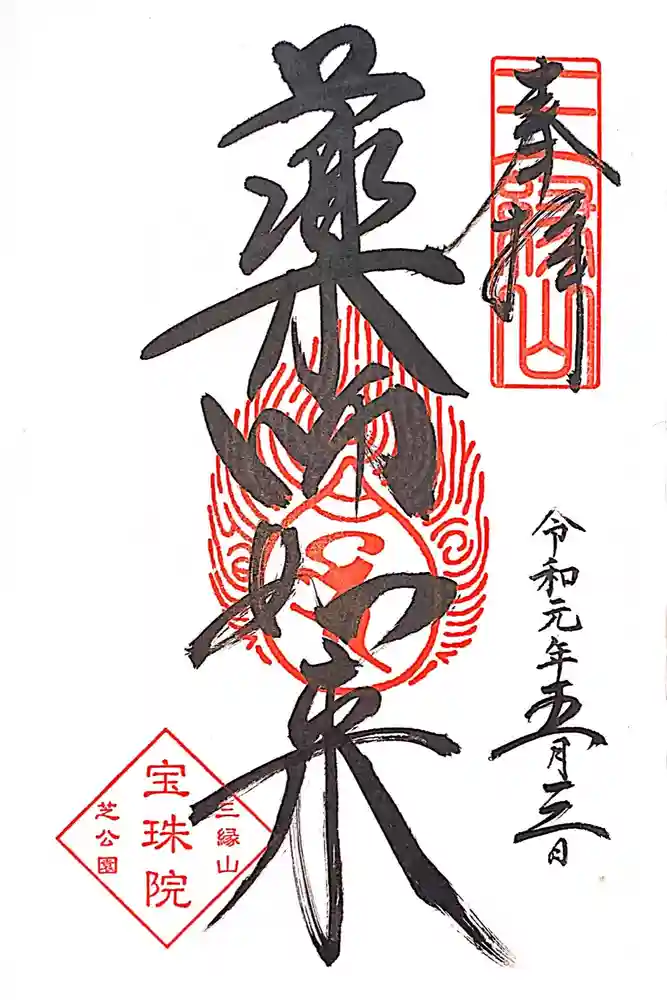 奉拝
三縁山
令和元年五月三日
薬師如来
三縁山
宝珠院
芝公園